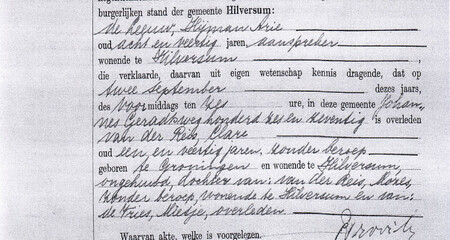 burgerlijken stand der gemeente Hilversum:
de Leeuw, Hijman Arie
oud acht en veertig jaren, aanspreker
wonende te Hilversum
die verklaarde, daarvan uit eigen wetenschap kennis dragende, dat op
twee september dezes jaars,
des voormiddags ten zes ure, in deze gemeente Johan-
nes Geradtsweg honderd zes en zeventig is overleden
van der Reis, Clara
oud een en veertig jaren, zonder beroep
geboren te Groningen en wonende te Hilversum,
ongehuwd, dochter van: van der Reis, Mozes,
zonder beroep, wonende te Hilversum en van:
de Vries, Mietje, overleden.
Waarvan akte, welke is voorgelezen.